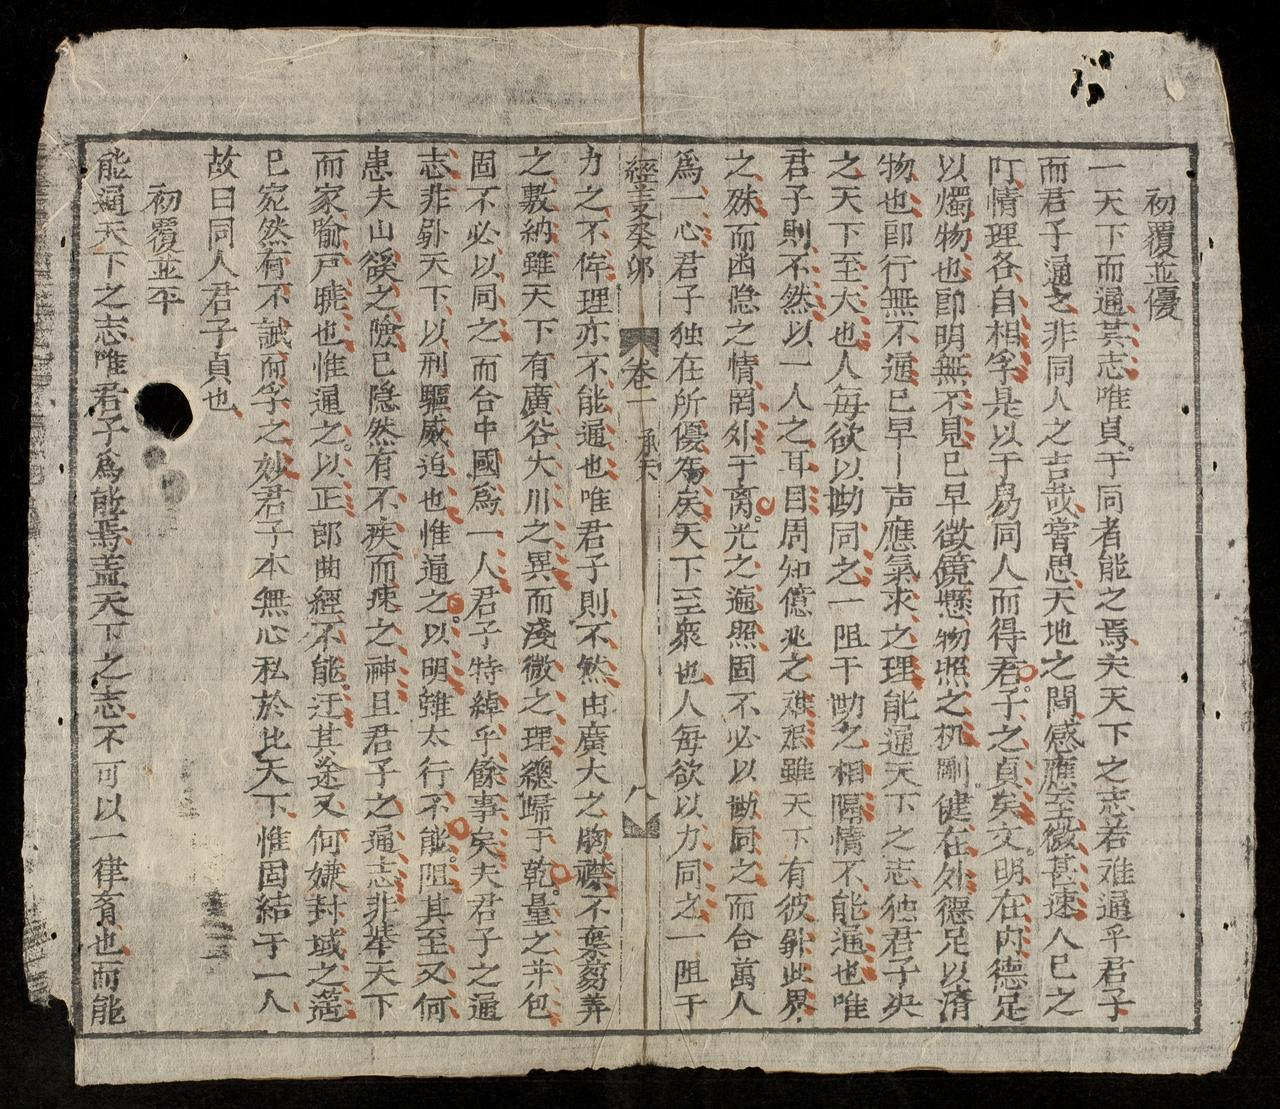 初覆並優
一天下而通其志唯貞于同者能之焉夫天下之志若难通乎君子
而君子通之非同人之吉哉嘗思天地之間感應至微甚速人己之
叮情理各自相孚是以于易同人而得君子之貞矣文明在内德足
以燭物也卽明無不見已早徵鏡懸物照之机剛健在外德足以濟
物也卽行無不通已早声應氣求之理能通天下之志独君子央
之天下至大也人每欲以勘同之一阻于勘之相隔情不能通也唯
君子則不然以一人之耳目周知億兆之难艰雖天下有彼疆此界
之殊而幽隐之情罔外于离光之遍照固不必以勘同之而合萬人
爲一心君子独在所優爲矣天下至衆也人每欲以力同之一阻于
經文癸卯 卷一 承天 八
力之不侔理亦不能通也唯君子則不然由廣大之胸襟不棄蒭荛
之敷納雖天下有廣谷大川之異而淺微之理總歸于乾量之并包
固不必以同之而合中國爲一人君子特綽乎餘事矣夫君子之通
志非勥天下以刑驅威迫也惟通之以明雖太行不能阻其至又何
患夫山谿之險已隐然有不疾而速之神且君子之通志非举天下
而家喻戸曉也惟通之以正郎曲經不能迂其途又何嫌封域之遥
已宛然有不誠而孚之妙君子本無心私於比天下惟固結于一人
故曰同人君子貞也
初覆並平
能通天下之志唯君子爲能焉盖天下之志不可以一律斉也而能